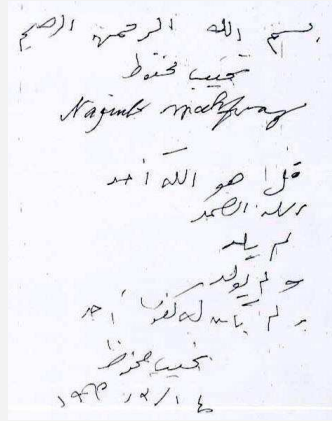 بسم الله الرحمن الرحيم
نجيب محفوظ
Naguib Mahfouz
قل هو الله أحد
الله الصمد
لم يلد
و لم يولد
و لم يكن له كفوا أحد
نجيب محفوظ